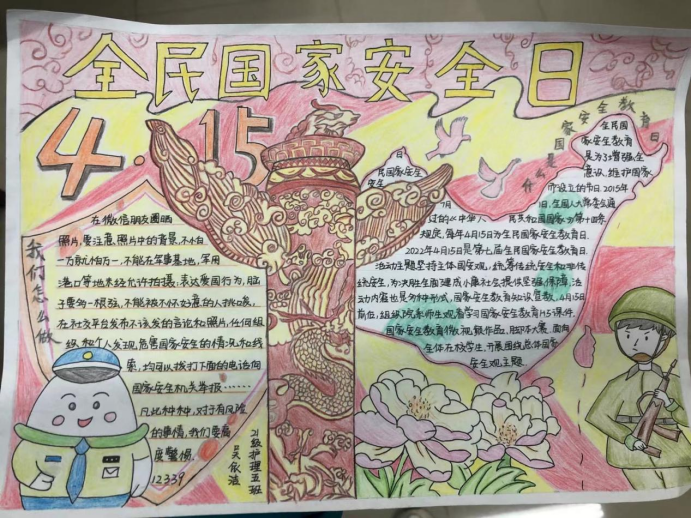 全民国家安全日
4.15
我们怎么做
在微信朋友圈晒
照片,要注意照片中的背景,不怕
一万就怕万一,不能在军事基地,军用
港口等地未经允许拍摄,表达爱国行为,脑
子要多一根弦,不能被不怀好意的人挑唆,
在社交平台发布不该发的言论和照片,任何组
组和个人发现危害国家安全的情况和线
索,均可以拨打下面的电话向
国家安全机关举报……
凡此种种,对于有风险
的事情,我们要高
度警惕
12339
21级护理五班
什么是国家安全教育日
全民国
家安全教育
是为了增强全
意识,维护国家
日
民国家安全
安全
而设立的节日.2015年
7月
日,全国人大常委会通
过的《中华人
民共和国国家
第十四条
规定,每年4月15日为全民国家安全教育日.
2022年4月15日是第七届全民国家安全教育日.
活动主题坚持主体国安观,统筹传统安全和非传
统安全,为决胜全面建成小康社会提供坚强保障,活
动内容也是多种形式,国家安全教育知识竞教,4月15日
前位,组组院系师生观看学习国家安全教育H5课件,
国家安全教育微视频作品,班环大赛.面向
全体在校学生,开展围绕总体国家
安全观主题.